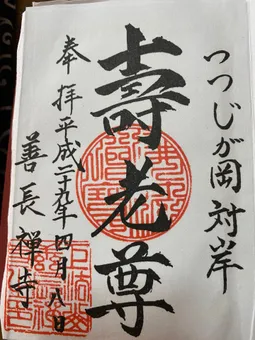 つつじが岡対岸
壽老尊
奉拝平成二十九年四月八日
善長禅寺